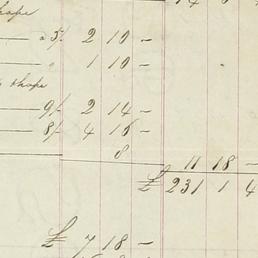 a 5/ 2 10 —
" 1 10 —
9/ 2 14 —
8/ 4 16 —
8
11 18 —
£ 231 1 4
£ 7 18 —